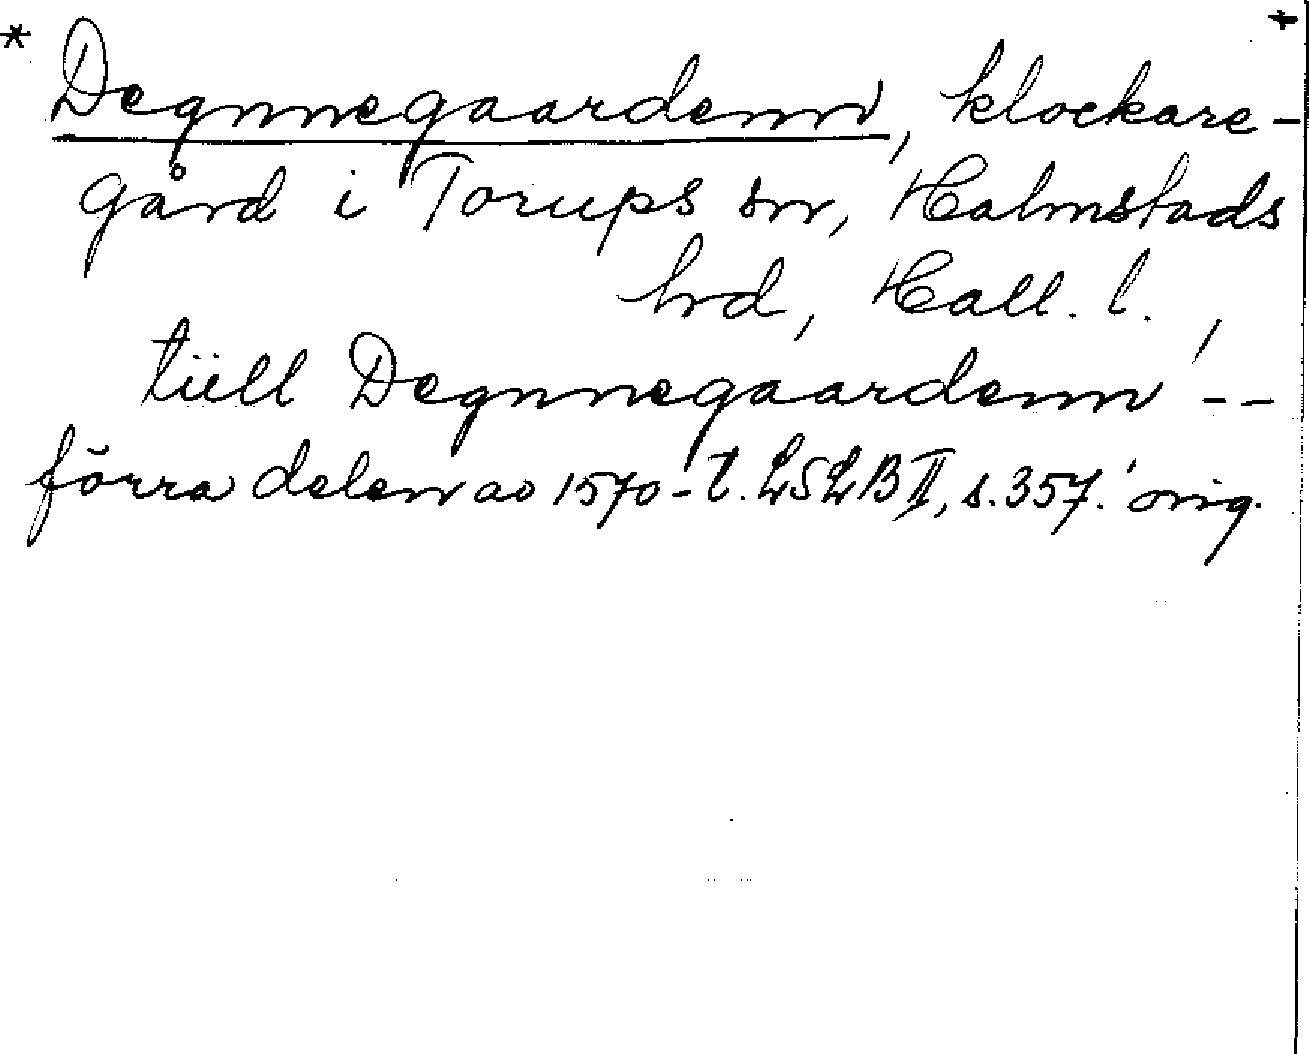 * Degnnegaardenn, klockare- +
gård i Torups sn, Halmstads
hd, Hall. l.,
tiill Degnnegaardenn --
förra delen av 1570-t. LSLB II, s. 357. orig.